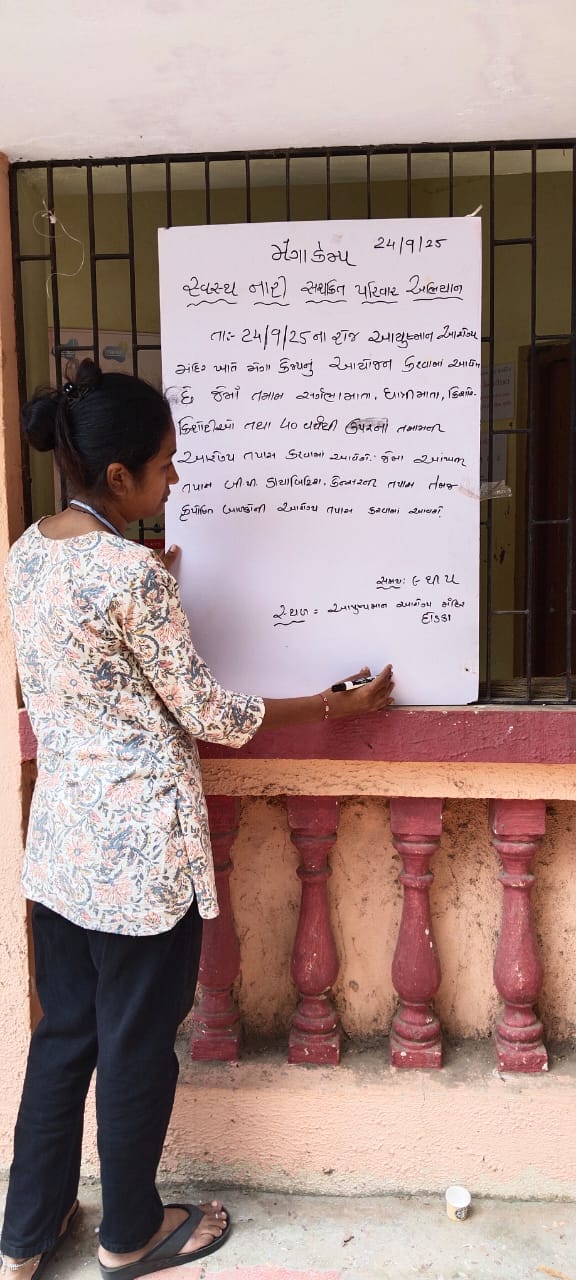 મેગા કેમ્પ 24/9/25
સ્વસ્થ નારી સશકિત પરિવાર અભિયાન
તાઃ- 24/9/25 ના રોજ આયુષ્માન આરોગ્ય
મંદિર ખાતે મેગા કેમ્પનું આયોજન કરવામાં આવેલ
છે જેમાં તમામ સર્ગભા માતા, ધાત્રી માતા, કિશોર-
કિશોરીઓ તથા ૪૦ વર્ષથી ઉપરના તમામની
આરોગ્ય તપાસ કરવામાં આવશે. જેમાં આંખની
તપાસ બી.પી. ડાયાબિટિસ, કેન્સરની તપાસ તેમજ
કુપોષિત બાળકોની આરોગ્ય તપાસ કરવામાં આવશે.
સમયઃ ૯ થી ૫
સ્થળ = આયુષ્યમાન આરોગ્ય મંદિર